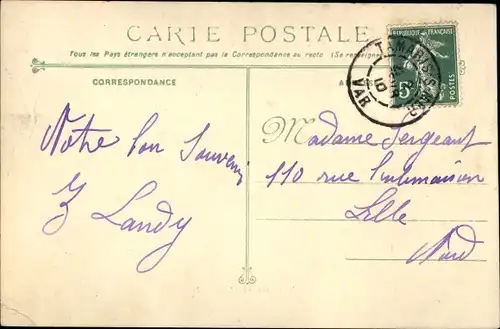 CARTE POSTALE
Tous les Pays étrangers n'acceptent pas la Correspondance au recto (Se renseigner
CORRESPONDANCE
REPUBLIQUE FRANÇAISE
POSTES
5
TAMARIS
VAR
Notre bon Souvenir
Landy
Madame Sergeant
110 rue
Lille
Nord